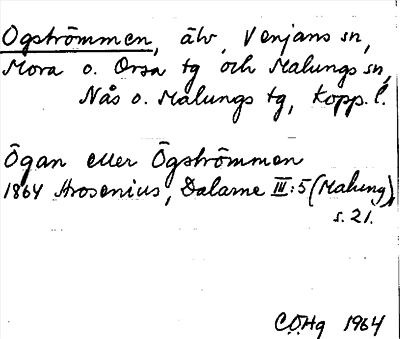 Ogströmmen, älv, Venjans sn,
Mora o. Orsa tg och Malungs sn,
Nås o. Malungs tg, Kopp. l.
Ögan eller Ögströmmen
1864 Arosenius, Dalarne III:5 (Malung),
s. 21.
CÖHg 1964